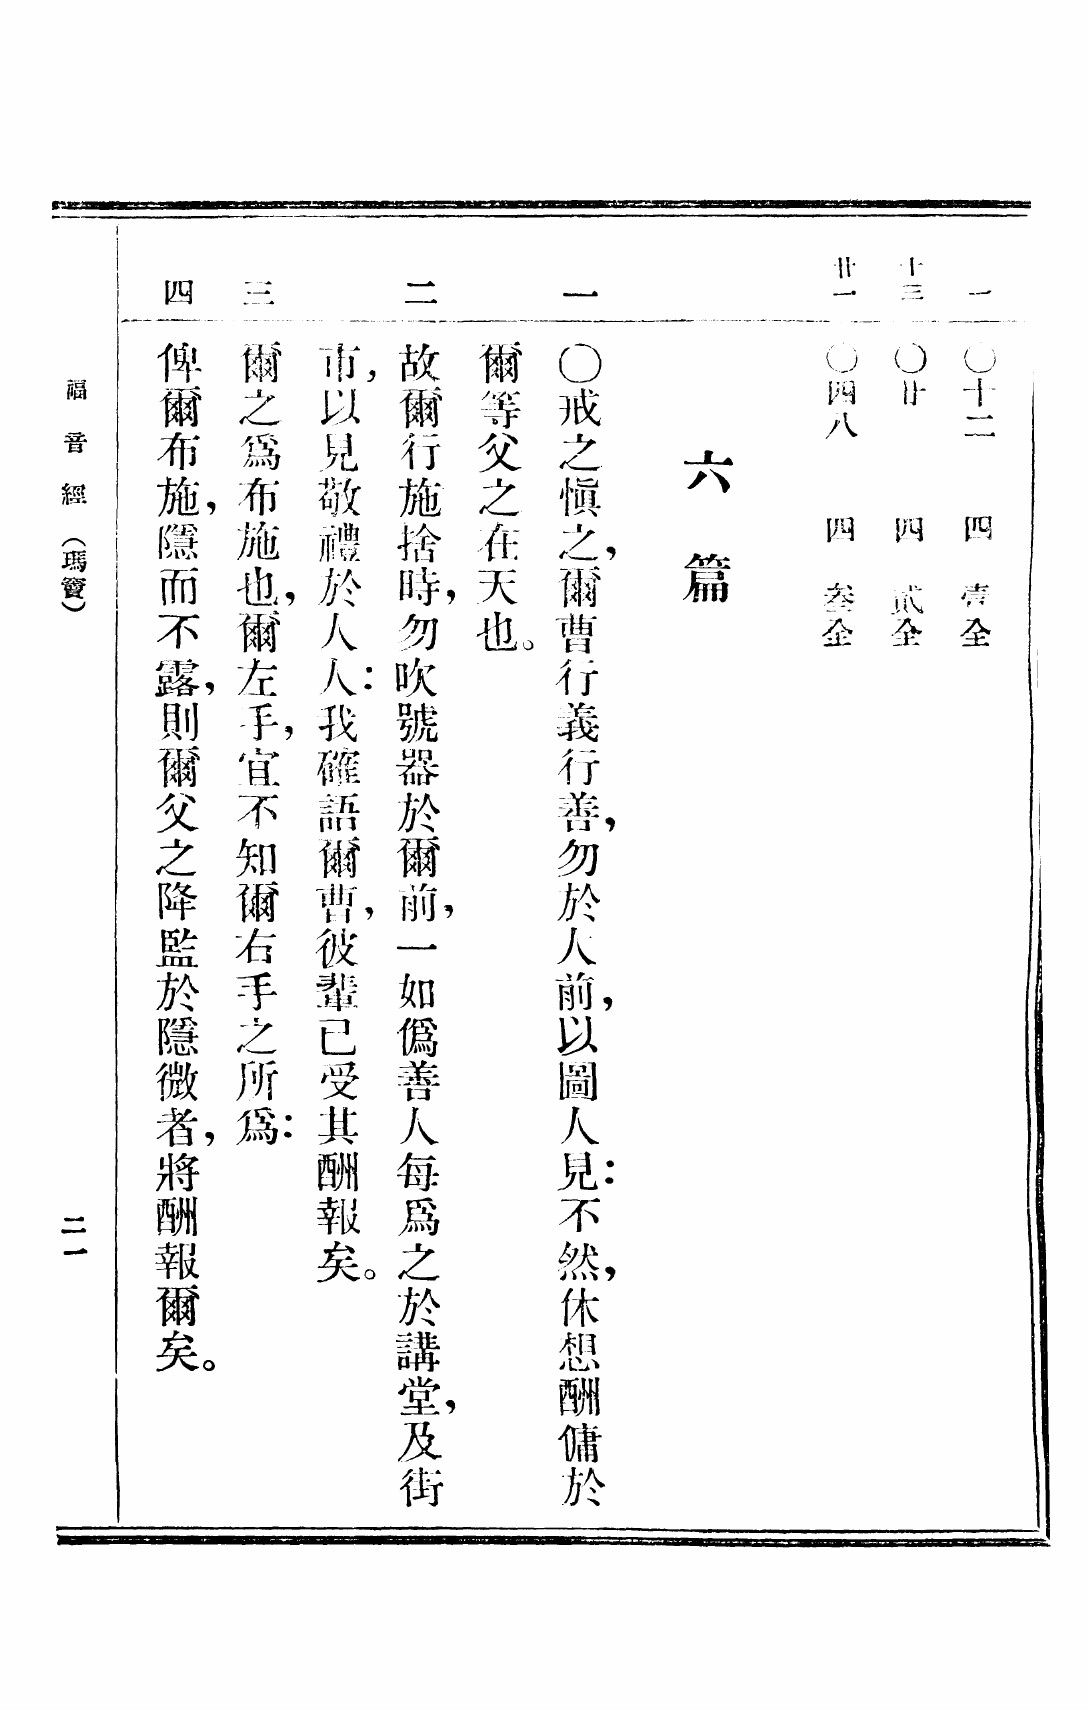 一　〇十二　四　壹仝
十三　〇廿　四　貳仝
廿一　〇四八　四　叁仝
六篇
一　〇戒之愼之，爾曹行義行善，勿於人前，以圖人見：不然，休想酬傭於
爾等父之在天也。
二　故爾行施捨時，勿吹號器於爾前，一如僞善人每爲之於講堂，及街
市，以見敬禮於人人：我確語爾曹，彼輩已受其酬報矣。
三　爾之爲布施也，爾左手，宜不知爾右手之所爲：
四　俾爾布施，隱而不露，則爾父之降監於隱微者，將酬報爾矣。
福音經（瑪竇）
二一